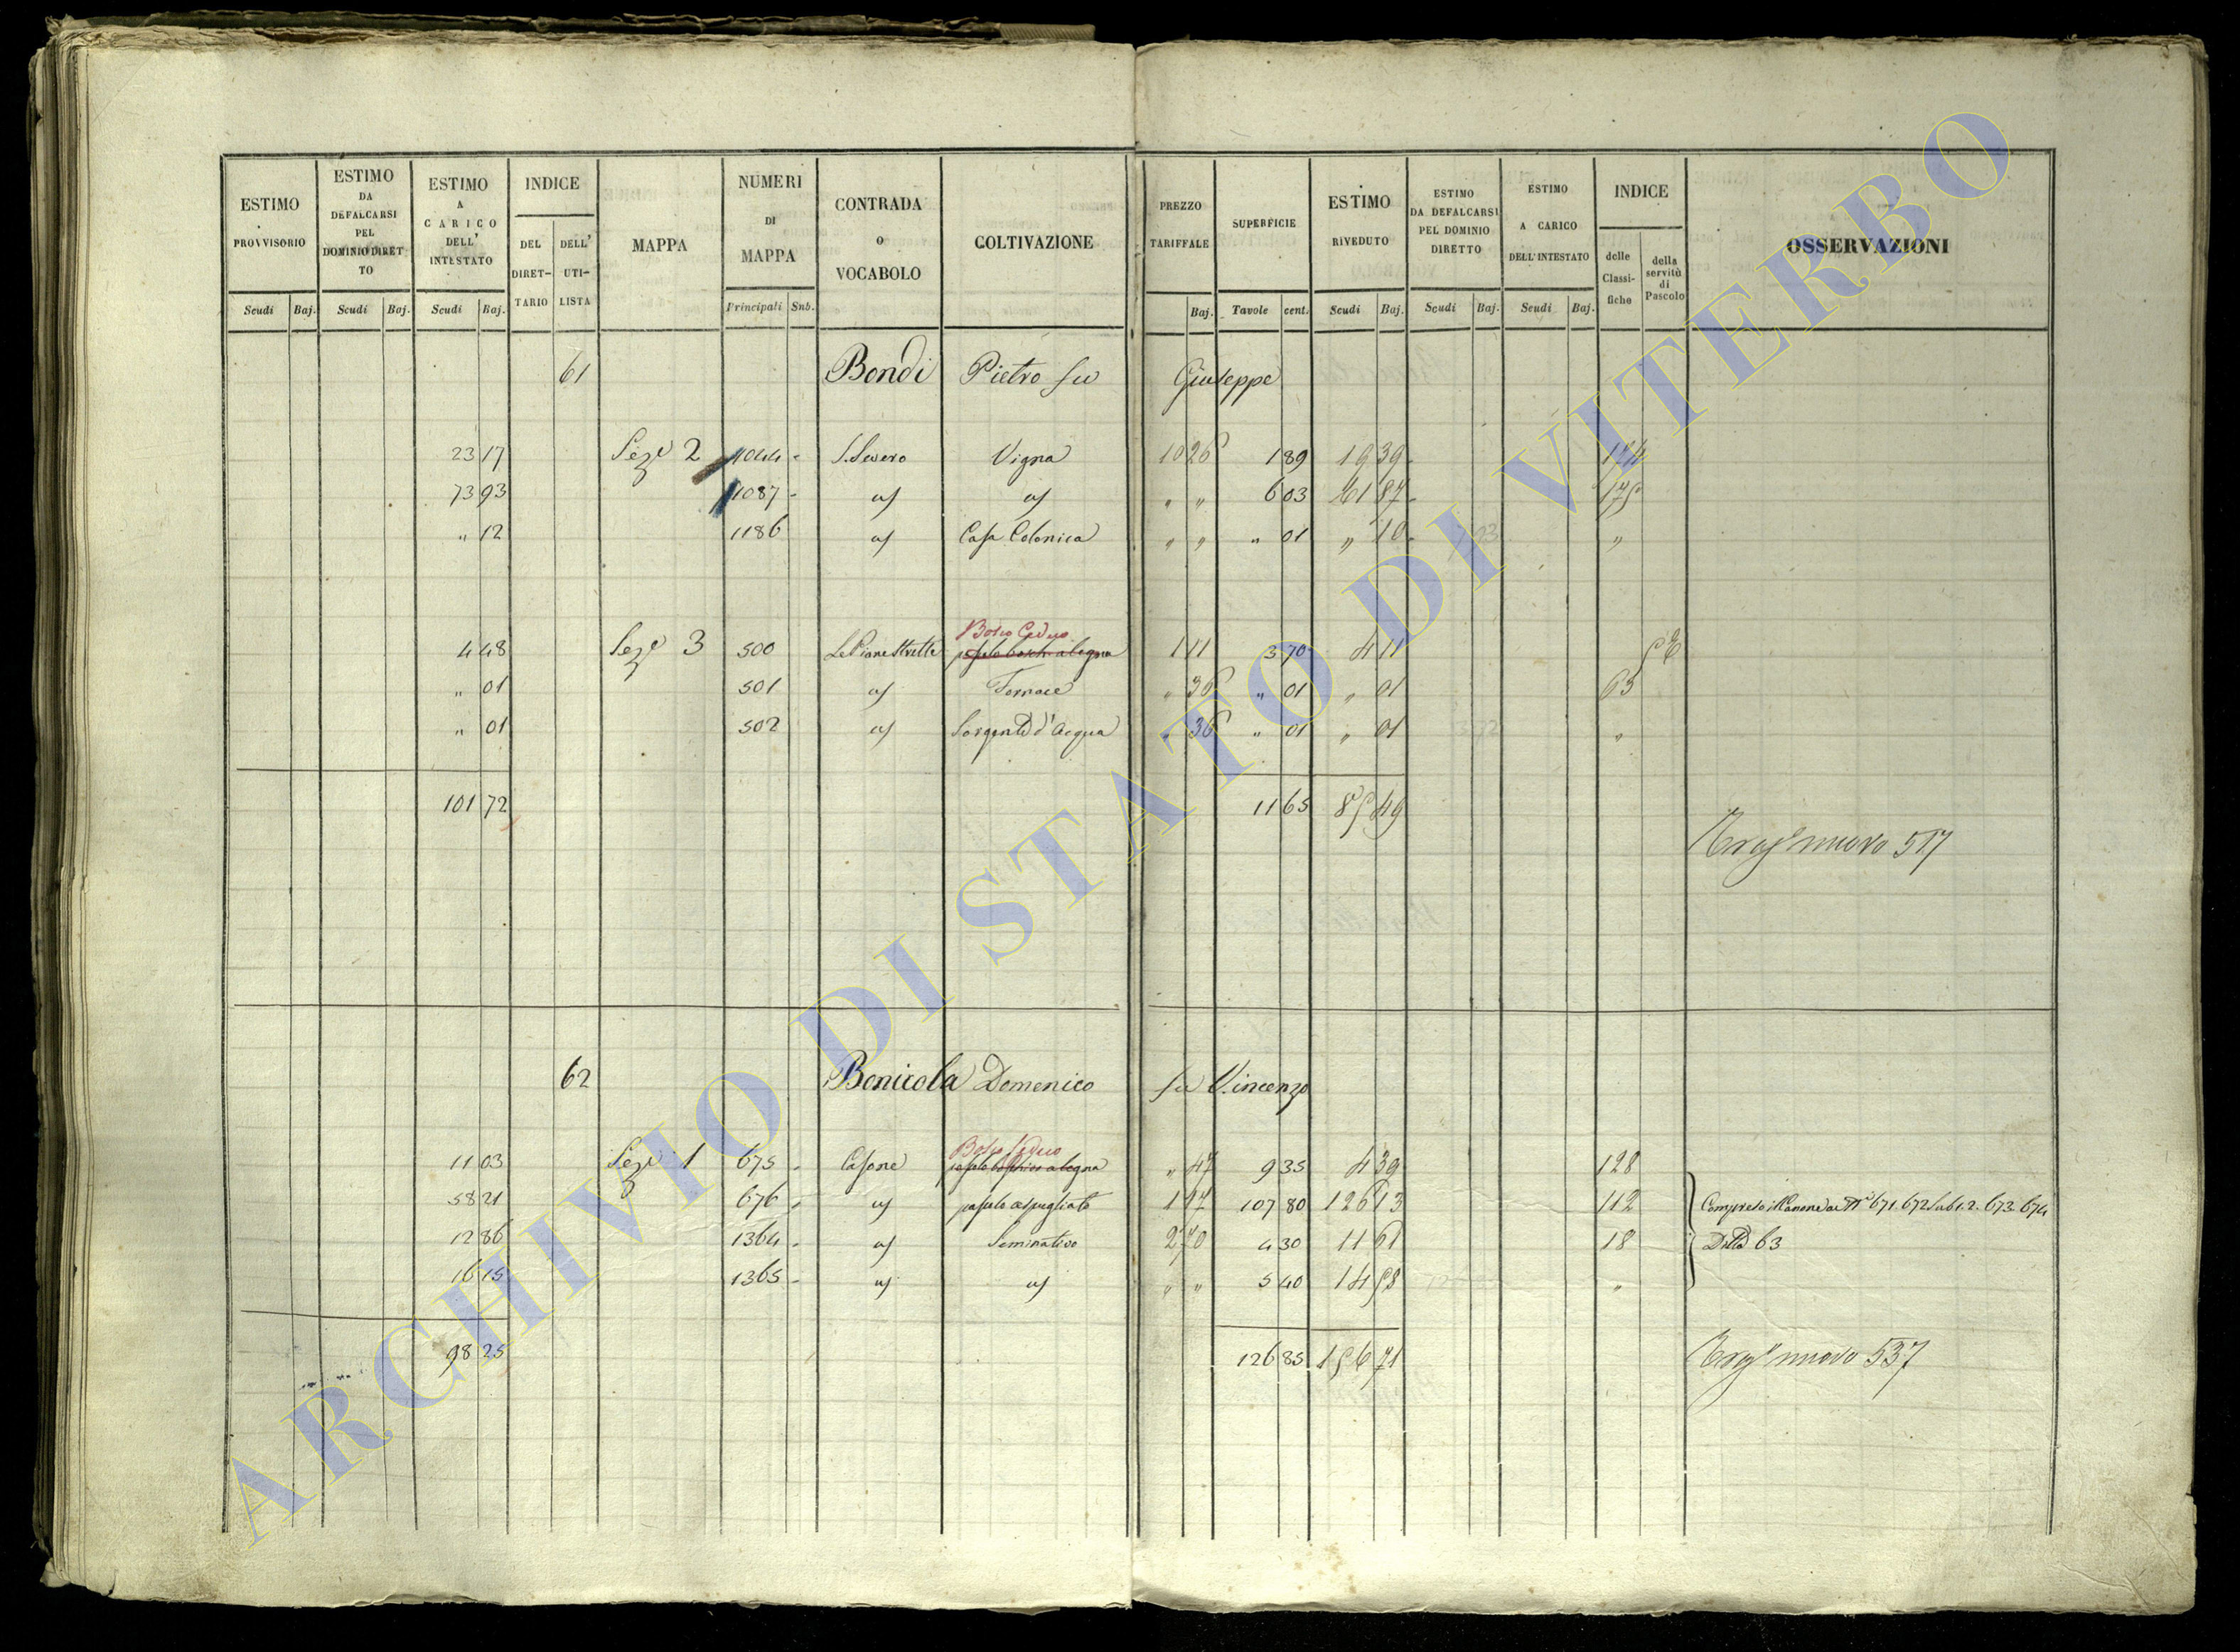 ESTIMO PROVVISORIO
ESTIMO DA DEFALCARSI PEL DOMINIO DIRETTO
ESTIMO A CARICO DELL' INTESTATO
INDICE
DEL DIRETTARIO
DELL' UTILISTA
MAPPA
NUMERI DI MAPPA
CONTRADA o VOCABOLO
COLTIVAZIONE
PREZZO TARIFFALE
SUPERFICIE
ESTIMO RIVEDUTO
ESTIMO DA DEFALCARSI PEL DOMINIO DIRETTO
ESTIMO A CARICO DELL'INTESTATO
INDICE
delle Classifiche
della servitù di Pascolo
OSSERVAZIONI
Scudi Baj. Scudi Baj. Scudi Baj. Principali Sub. Baj. Tavole cent. Scudi Baj. Scudi Baj. Scudi Baj.
61 Bondi Pietro fu Giuseppe
23 17 Seze 2 1044 - S. Severo Vigna 10 26 1 89 19 39 174
73 93 1087 - " " " " 6 03 61 87 175
" 12 1186 " Casa Colonica " " " 01 " 10 "
Bosco Ceduo
4 48 Seze 3 500 Le Piane Strette 1 11 3 70 4 11
" 01 501 " Fornace " 36 " 01 " 01 63
" 01 502 " Sorgente d'Acqua " 36 " 01 " 01 "
101 72 11 65 85 49
nuovo 517
62 Bonicola Domenico fu Vincenzo
Bosco Ceduo
11 03 Seze 1 675 - Casone " 47 9 35 4 39 128
58 21 676 - " pascolo cespugliato 1 17 107 80 126 13 112 Compreso il Canone ai Ni 671. 672 Sub 1. 2. 673. 674
12 86 1364 - " Seminativo 2 70 4 30 11 61 18 Ditta 63
16 15 1365 - " " " " 5 40 14 58 "
98 25 126 85 156 71
nuovo 537
ARCHIVIO DI STATO DI VITERBO